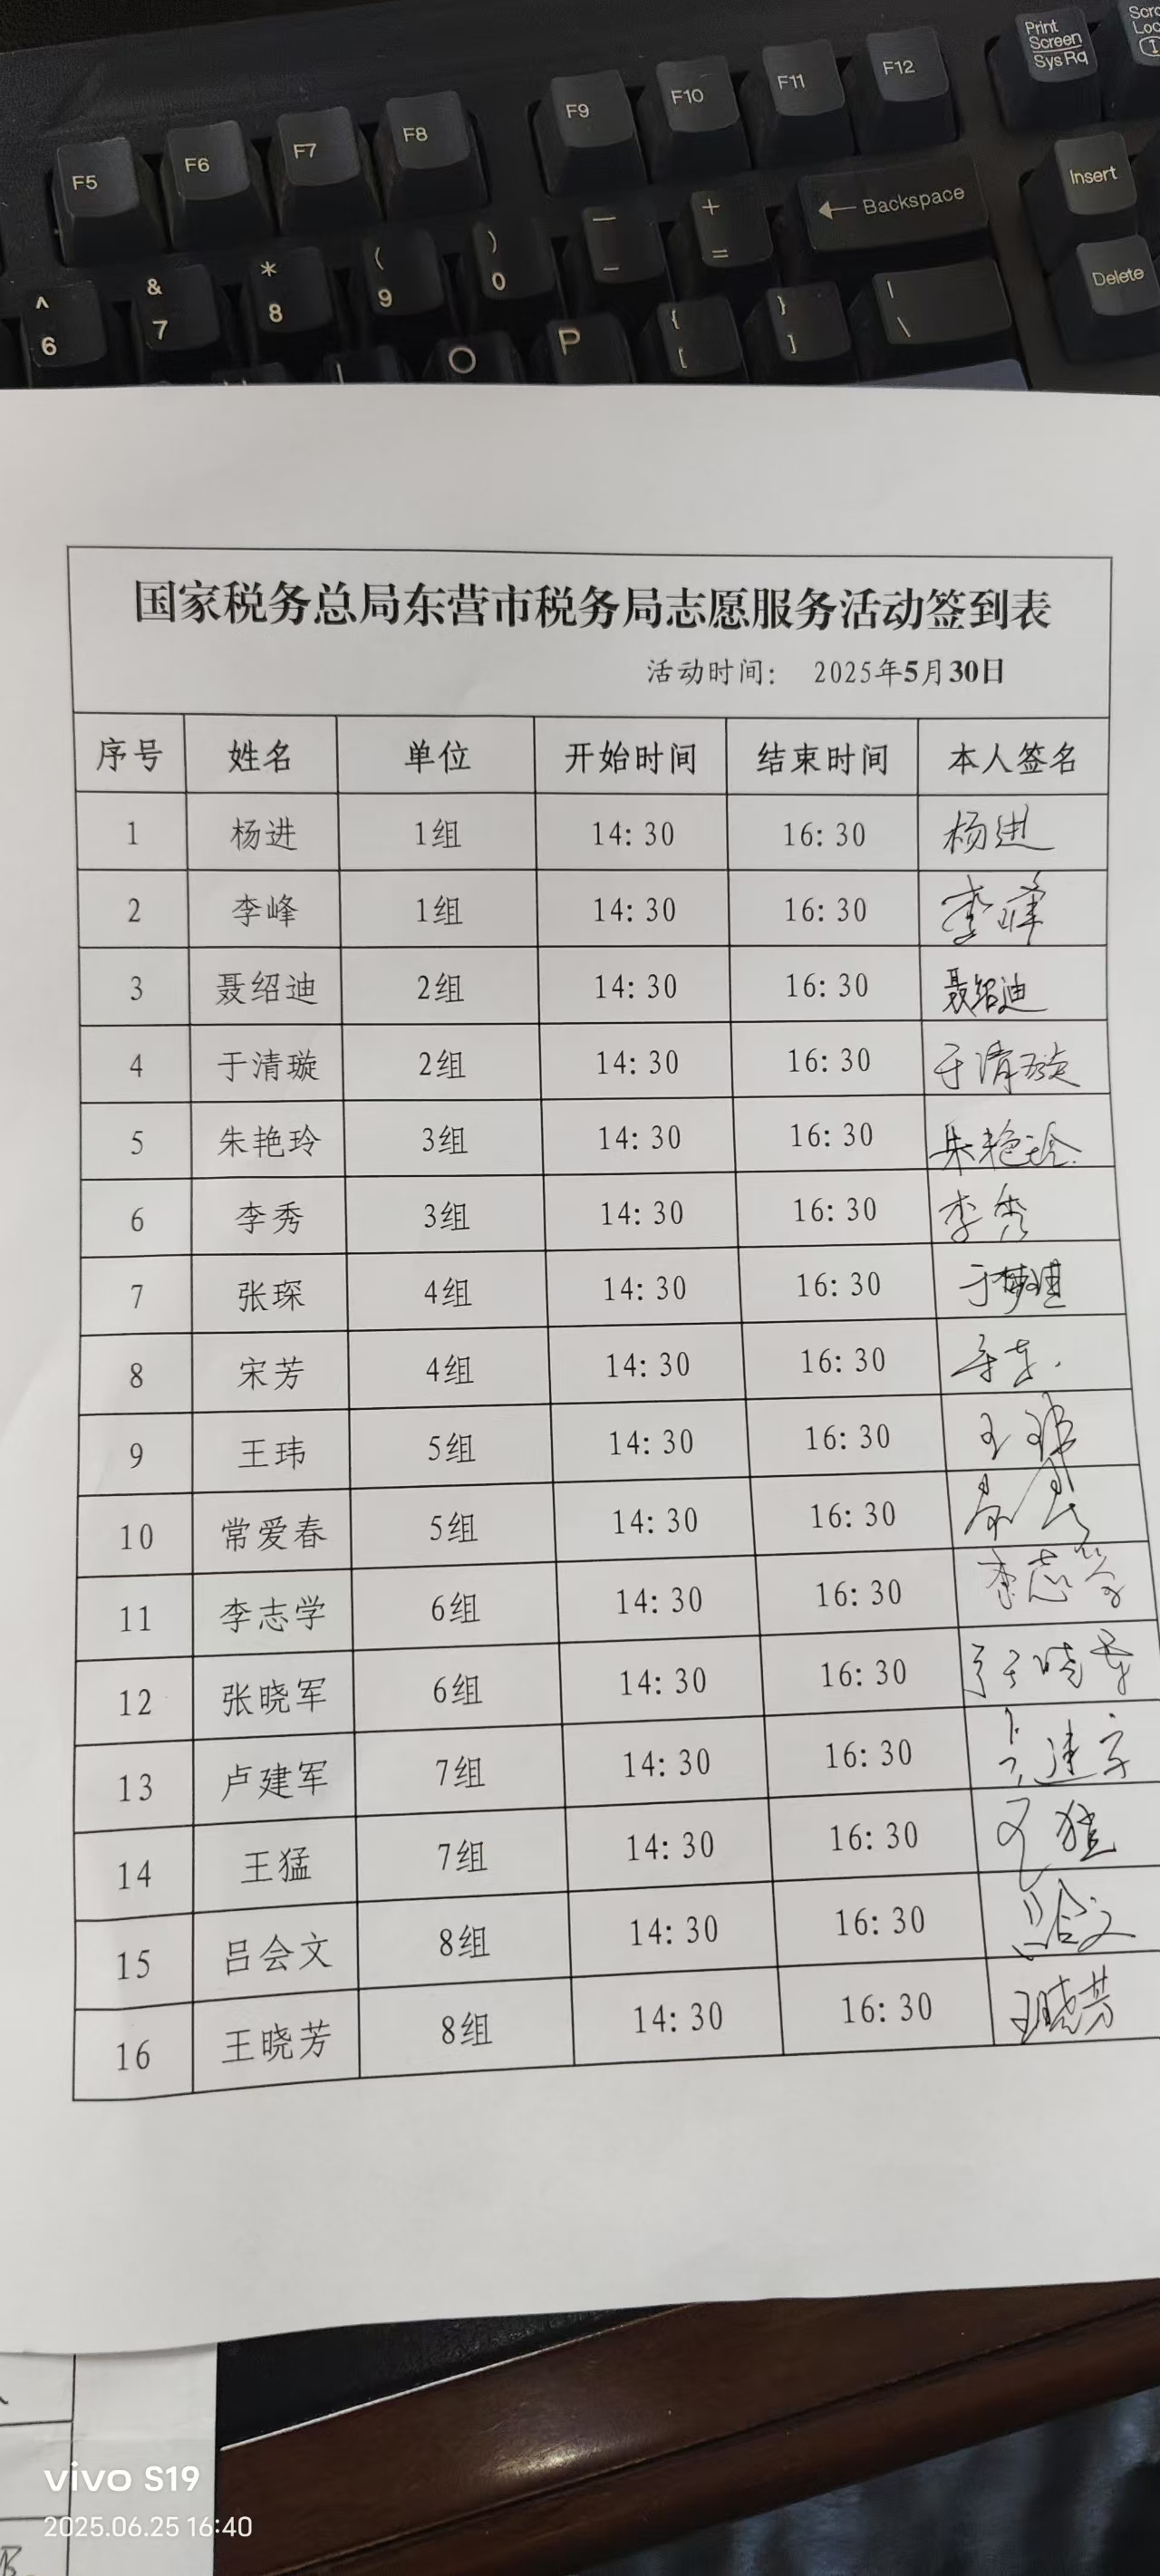 F5 F6 F7 F8 F9 F10 F11 F12 Print Screen SysRq
^ 6 & 7 * 8 ( 9 ) 0 — - + = ← Backspace Insert
O P { [ } ] | \ Delete
国家税务总局东营市税务局志愿服务活动签到表
活动时间： 2025年5月30日
序号 姓名 单位 开始时间 结束时间 本人签名
1 杨进 1组 14:30 16:30 杨进
2 李峰 1组 14:30 16:30 李峰
3 聂绍迪 2组 14:30 16:30 聂绍迪
4 于清璇 2组 14:30 16:30 于清璇
5 朱艳玲 3组 14:30 16:30 朱艳玲
6 李秀 3组 14:30 16:30 李秀
7 张琛 4组 14:30 16:30
8 宋芳 4组 14:30 16:30
9 王玮 5组 14:30 16:30 王玮
10 常爱春 5组 14:30 16:30
11 李志学 6组 14:30 16:30 李志学
12 张晓军 6组 14:30 16:30 张晓军
13 卢建军 7组 14:30 16:30 卢建军
14 王猛 7组 14:30 16:30 王猛
15 吕会文 8组 14:30 16:30 吕会文
16 王晓芳 8组 14:30 16:30 王晓芳
vivo S19
2025.06.25 16:40